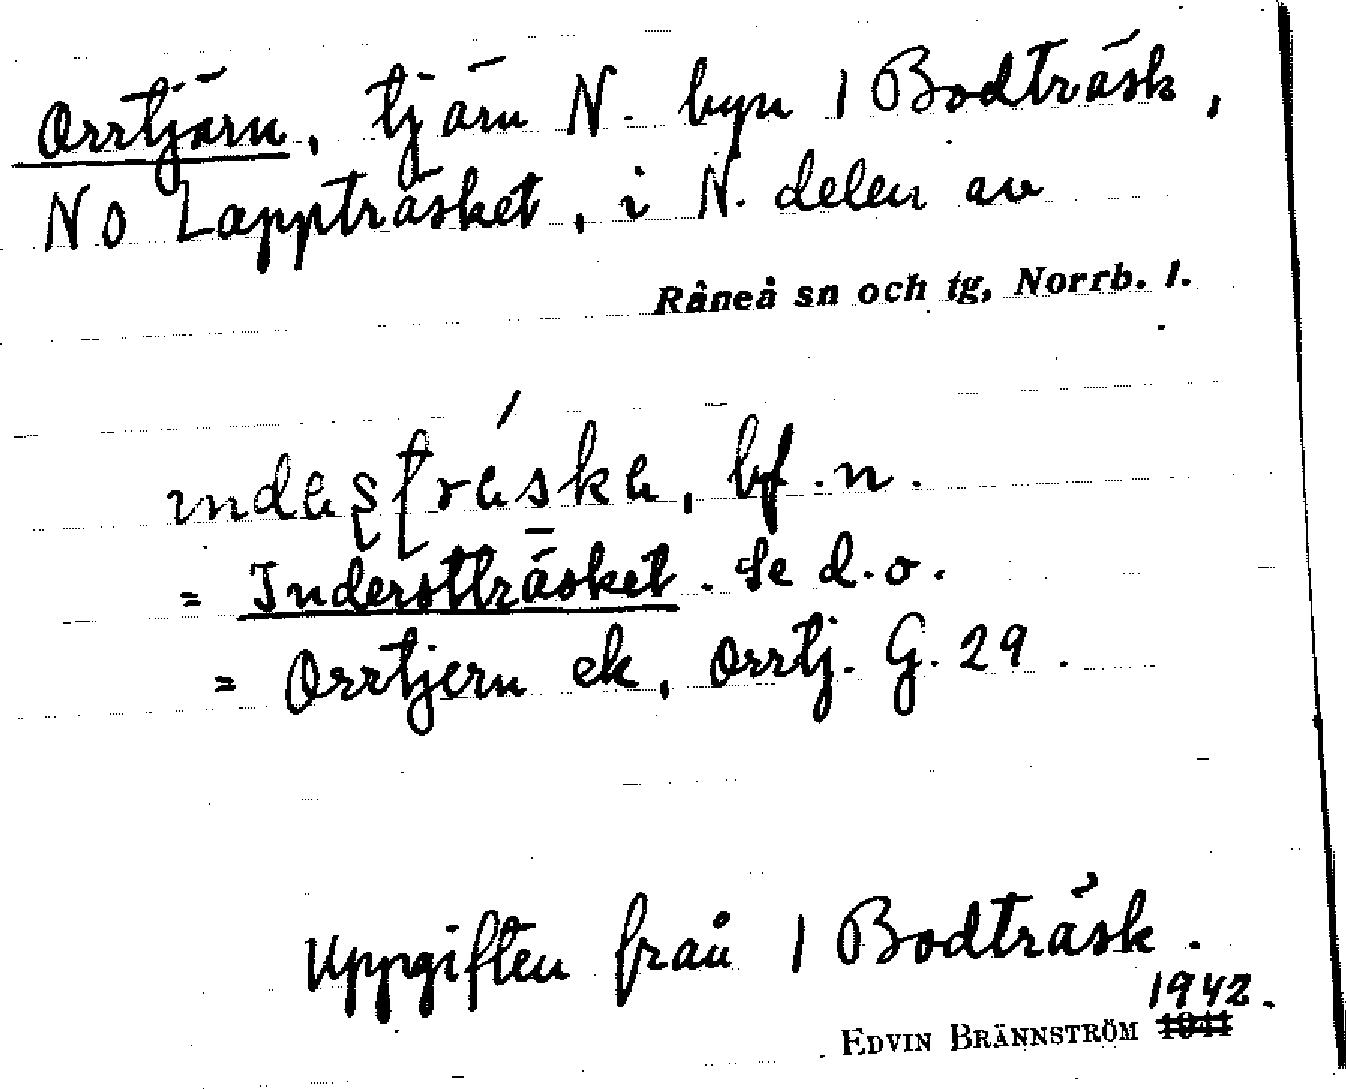 Orrtjärn, tjärn N. byn 1 Bodträsk,
NO Lappträsket, i N. delen av
Råneå sn och tg, Norrb. l.
bf. n.
= Inderstträsket. Se d. o.
= Orrtjern ek, Orrtj. G. 29.
Uppgiften från 1 Bodträsk.
1942.
EDVIN BRÄNNSTRÖM 1941